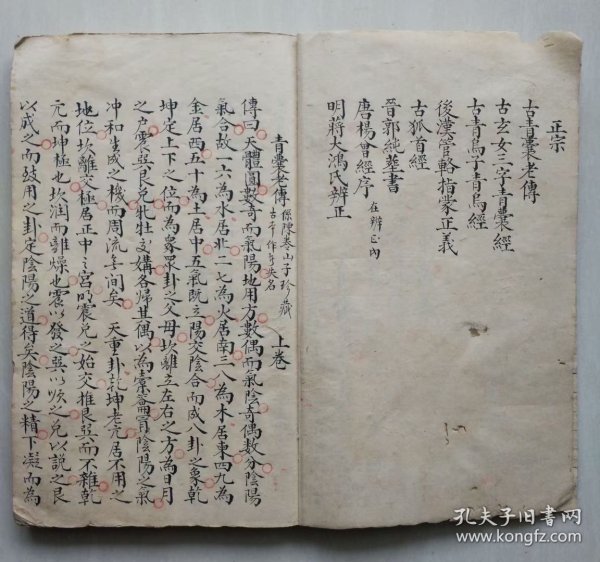 正宗
古青囊老傳
古玄女三字青囊經
古青烏子青烏經
後漢管輅指蒙正義
古狐首經
晉郭純塟書
唐楊曾經序 在辨正內
明蔣大鴻氏辨正
青囊老傳 係陳泰山子珍藏 古本作字失名 上卷
傳曰天體圓數奇而氣陽地用方數偶而氣陰奇偶數分陰陽
氣合故一六為水居北二七為火居南三八為木居東四九為
金居西五十為土居中五氣既立陽交陰合而成八卦之象乾
坤定上下之位而為衆卦之父母坎離立左右之方為日月
之戶震巽艮兌牝壮交媾各歸其偶以為橐籥貫陰陽之氣
冲和生成之機而周流無間矣 天重卦乾坤老亢居不用之
地位坎離交極居正中之宮明震兌之始交推艮巽而不雜乾
亢而坤極也坎润而離燥也震以發之巽以順之兌以說之艮
以成之而致用之卦定陰陽之道得矣陰陽之精下凝而為
孔夫子旧書网
www.kongfz.com